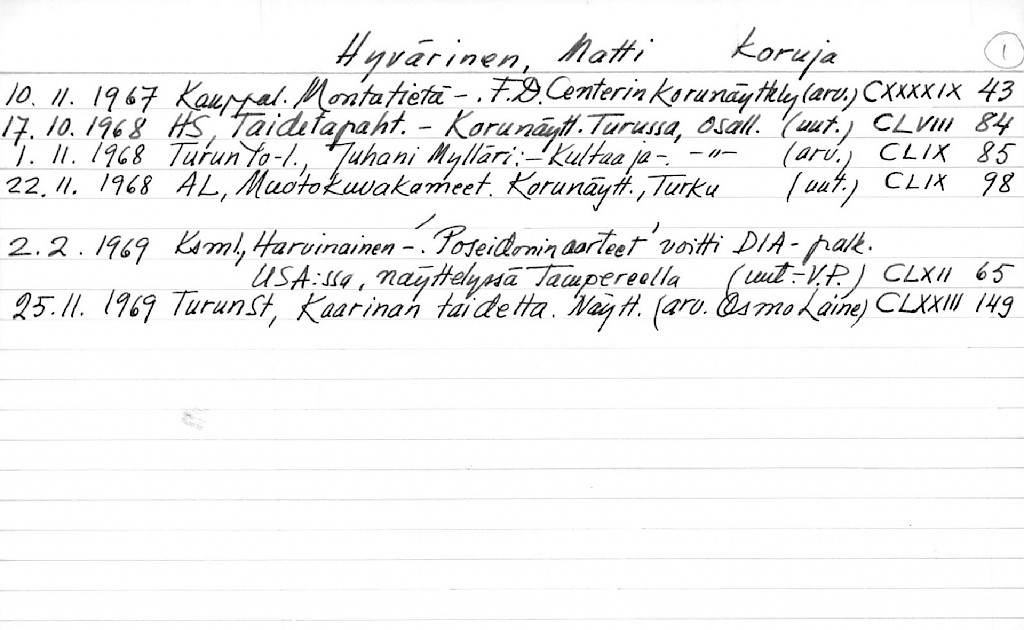 Hyvärinen, Matti Koruja 1
10. 11. 1967 Kauppal. Montatietä -. F.D. Centerin Korunäyttely (arv.) CXXXXIX 43
17. 10. 1968 HS, Taidetapaht. - Korunäytt. Turussa, osall. (uut.) CLVIII 84
1. 11. 1968 Turun Yo-l., Juhani Mylläri: - Kultaa ja -. -"- (arv.) CLIX 85
22. 11. 1968 AL, Muotokuvakameet. Korunäytt., Turku (uut.) CLIX 98
2. 2. 1969 Ksml, Harvinainen -. 'Poseidonin aarteet' voitti DIA - palk.
USA:ssa, näyttelyssä Tampereella (uut. - V.P.) CLXII 65
25. 11. 1969 TurunSt, Kaarinan taidetta. Näytt. (arv. Osmo Laine) CLXXIII 149